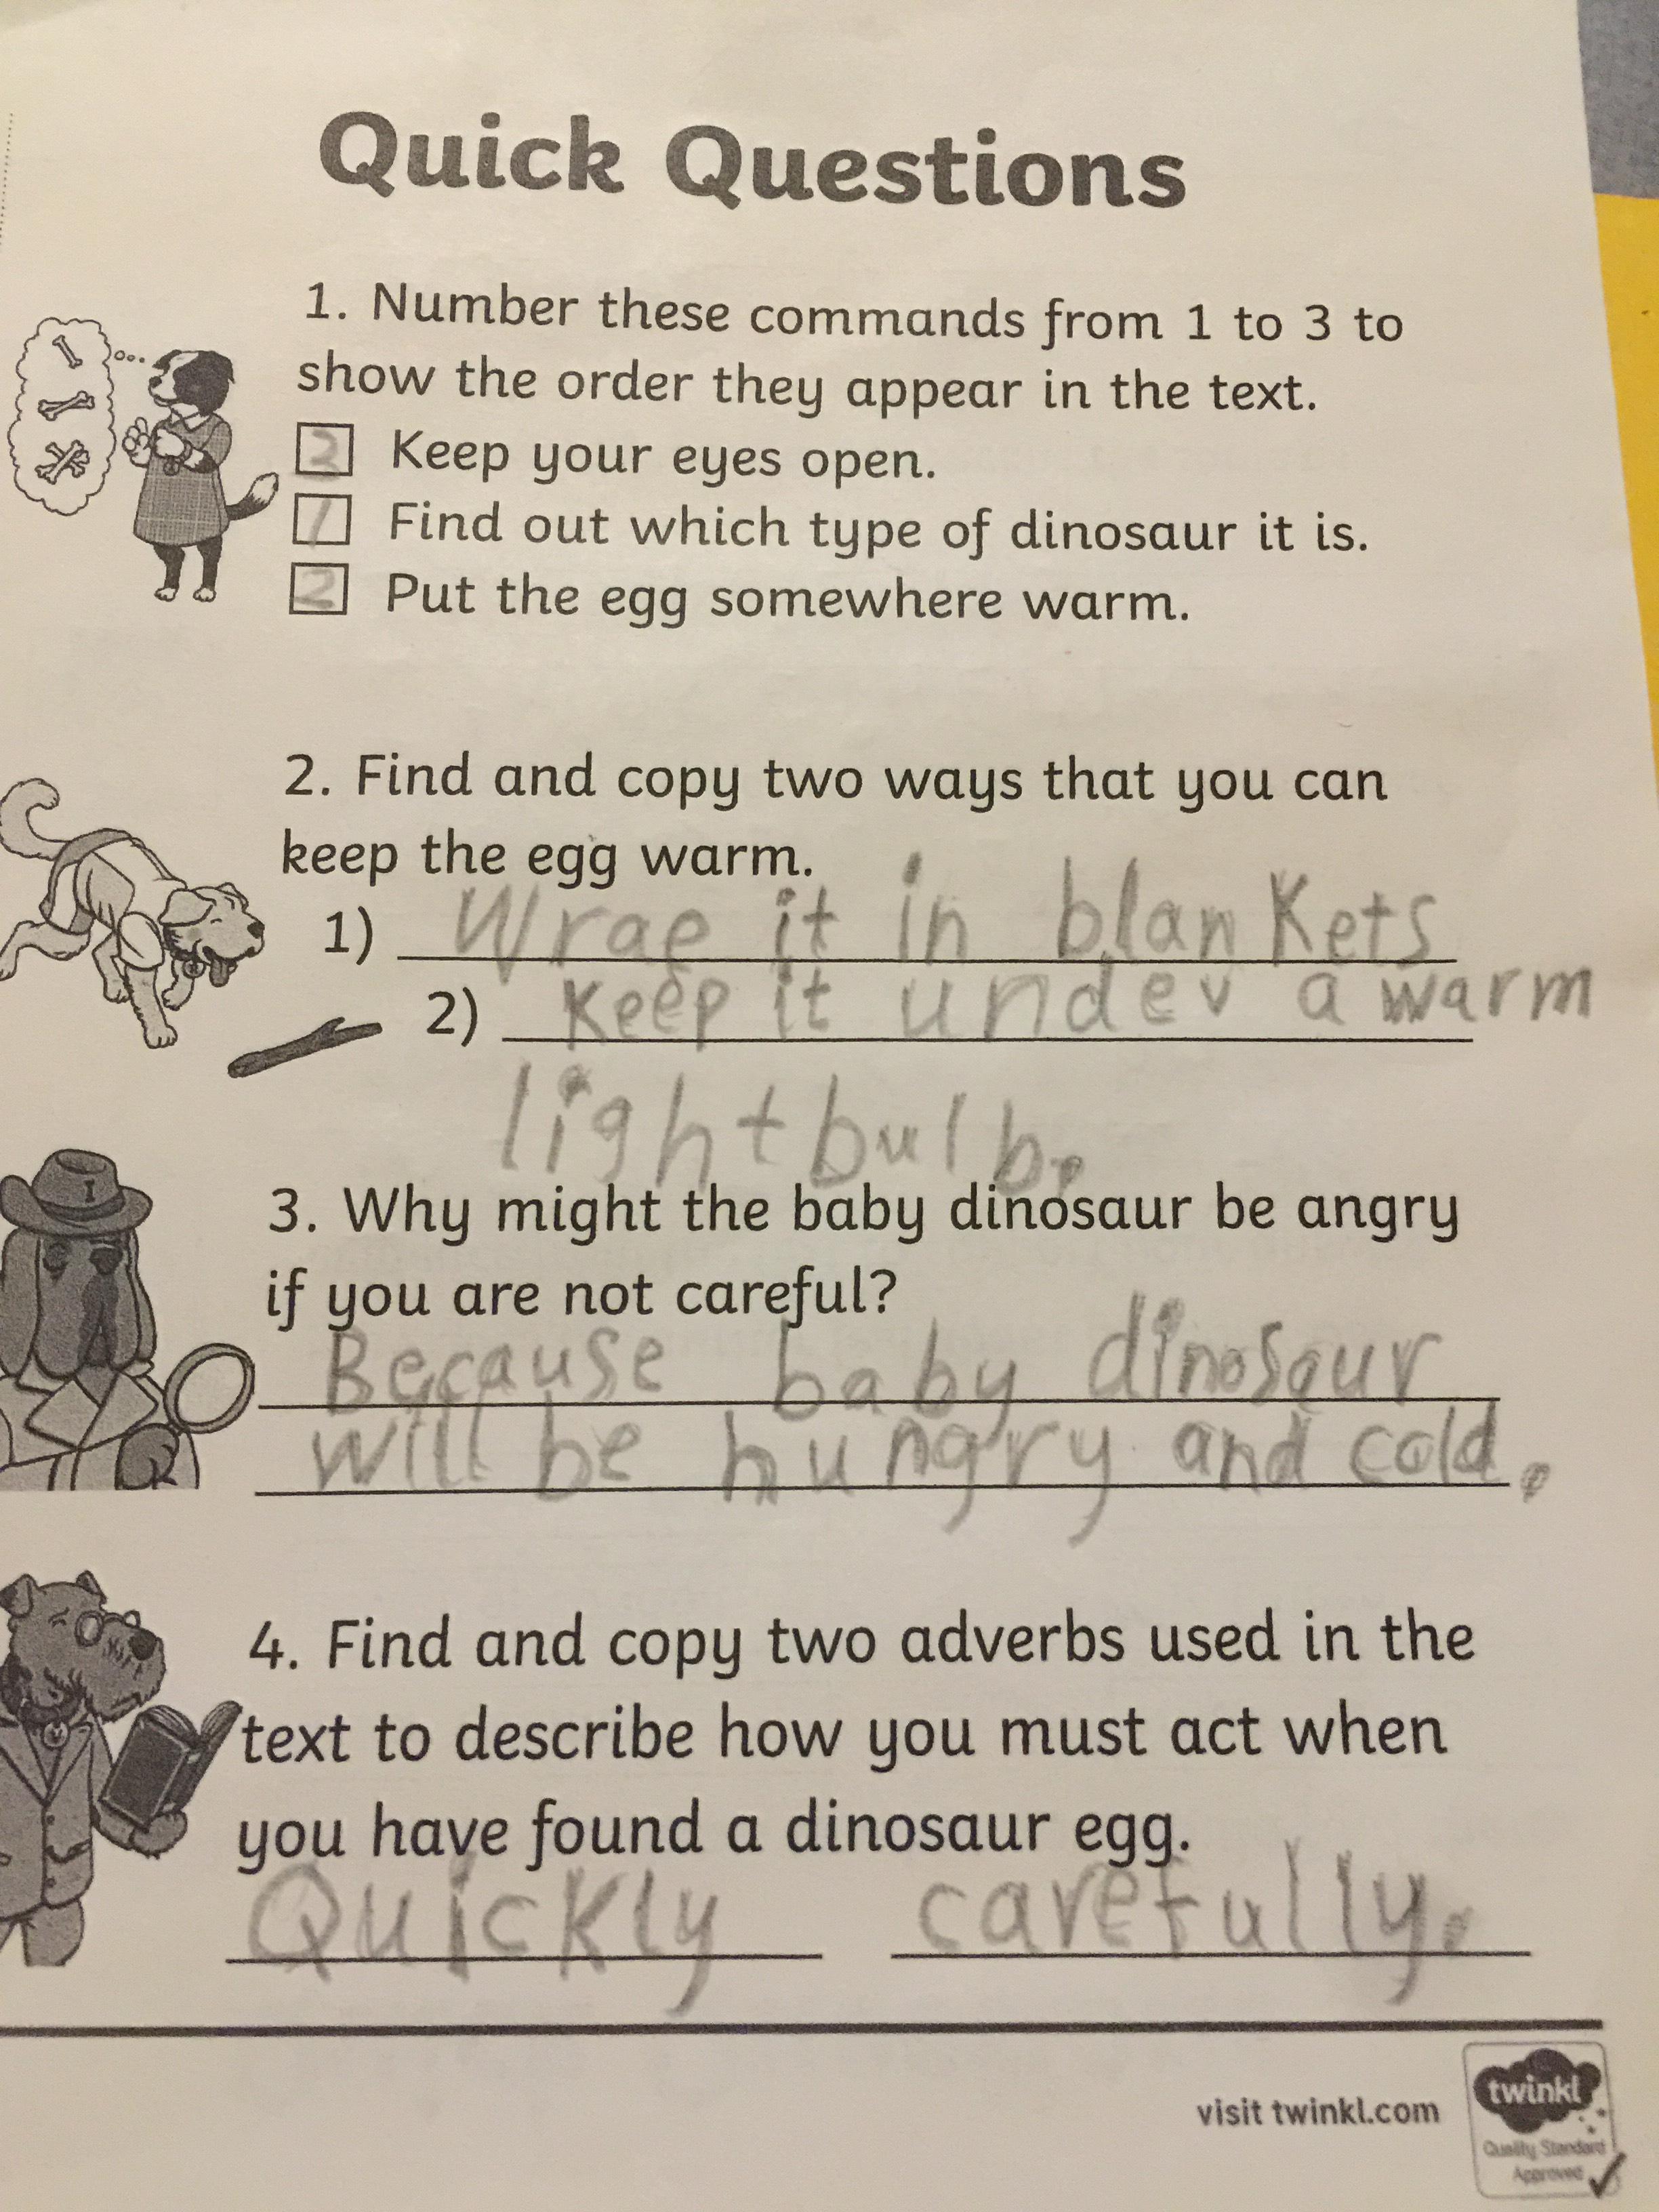 Quick Questions
1. Number these commands from 1 to 3 to
show the order they appear in the text.
2 Keep your eyes open.
1 Find out which type of dinosaur it is.
2 Put the egg somewhere warm.
2. Find and copy two ways that you can
keep the egg warm.
1) Wrap it in blankets
2) Keep it under a warm
lightbulb.
3. Why might the baby dinosaur be angry
if you are not careful?
Because baby dinosaur
will be hungry and cold.
4. Find and copy two adverbs used in the
text to describe how you must act when
you have found a dinosaur egg.
Quickly carefully.
visit twinkl.com
twinkl
Quality Standard
Approved